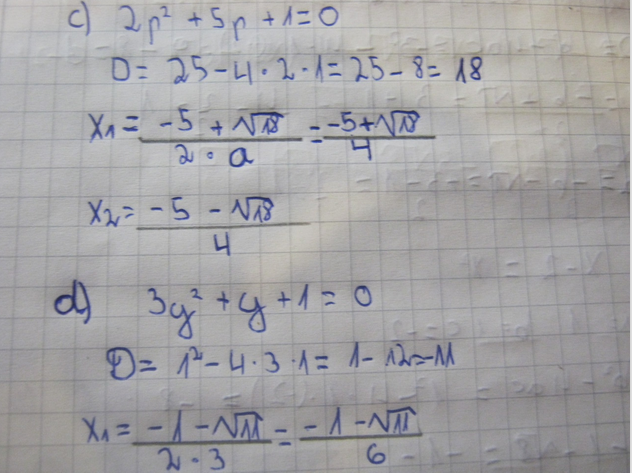 c) 2p² + 5p + 1 = 0
D = 25 - 4 · 2 · 1 = 25 - 8 = 18
x₁ = (-5 + √18)/(2 · a) = (-5 + √18)/4
x₂ = (-5 - √18)/4
d) 3y² + y + 1 = 0
D = 1² - 4 · 3 · 1 = 1 - 12 = -11
x₁ = (-1 - √11)/(2 · 3) = (-1 - √11)/6